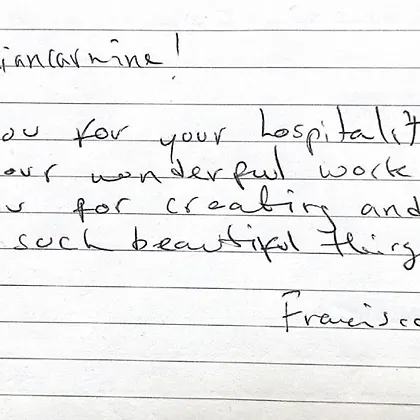 iancarmine!
ou for your hospitalit
our wonderful work
u for creating and
such beautiful thing
Francisco